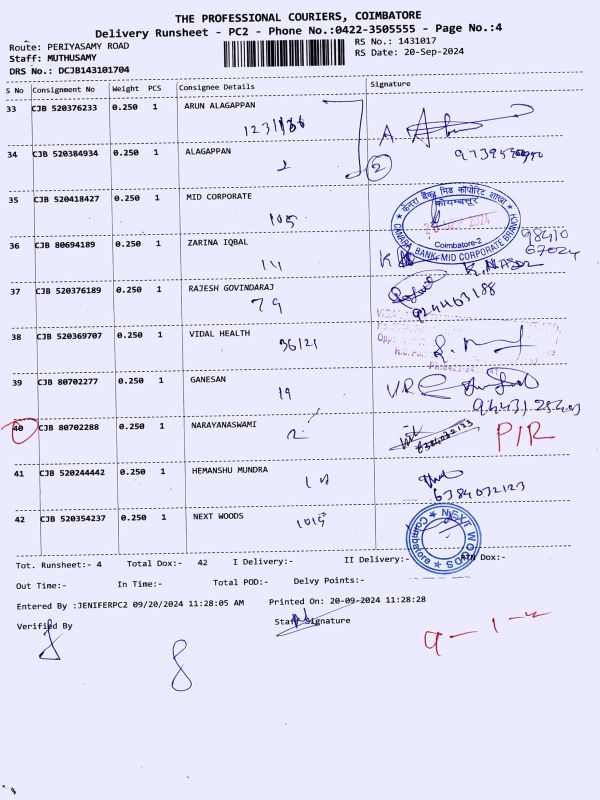 THE PROFESSIONAL COURIERS, COIMBATORE
Delivery Runsheet - PC2 - Phone No.:0422-3505555 - Page No.:4
Route: PERIYASAMY ROAD
RS No.: 1431017
Staff: MUTHUSAMY
RS Date: 20-Sep-2024
DRS No.: DCJB143101704
S No Consignment No Weight PCS Consignee Details Signature
33 CJB 520376233 0.250 1 ARUN ALAGAPPAN
34 CJB 520384934 0.250 1 ALAGAPPAN
2
35 CJB 520418427 0.250 1 MID CORPORATE
105
केनरा बैंक मिड कॉर्पोरेट शाखा
कोयम्बत्तूर
2024
Coimbatore-2
CANARA BANK-MID CORPORATE BRANCH
36 CJB 80694189 0.250 1 ZARINA IQBAL
14
98410
67024
K.NASAR
37 CJB 520376189 0.250 1 RAJESH GOVINDARAJ
79
924463188
38 CJB 520369707 0.250 1 VIDAL HEALTH
36121
39 CJB 80702277 0.250 1 GANESAN
19
40 CJB 80702288 0.250 1 NARAYANASWAMI
2
6384032123
P/R
41 CJB 520244442 0.250 1 HEMANSHU MUNDRA
6384032123
42 CJB 520354237 0.250 1 NEXT WOODS
1015
NEXT WOODS
Coimbatore
Tot. Runsheet:- 4 Total Dox:- 42 I Delivery:- II Delivery:- Dox:-
Out Time:- In Time:- Total POD:- Delvy Points:-
Entered By :JENIFERPC2 09/20/2024 11:28:05 AM Printed On: 20-09-2024 11:28:28
Verified By Staff Signature